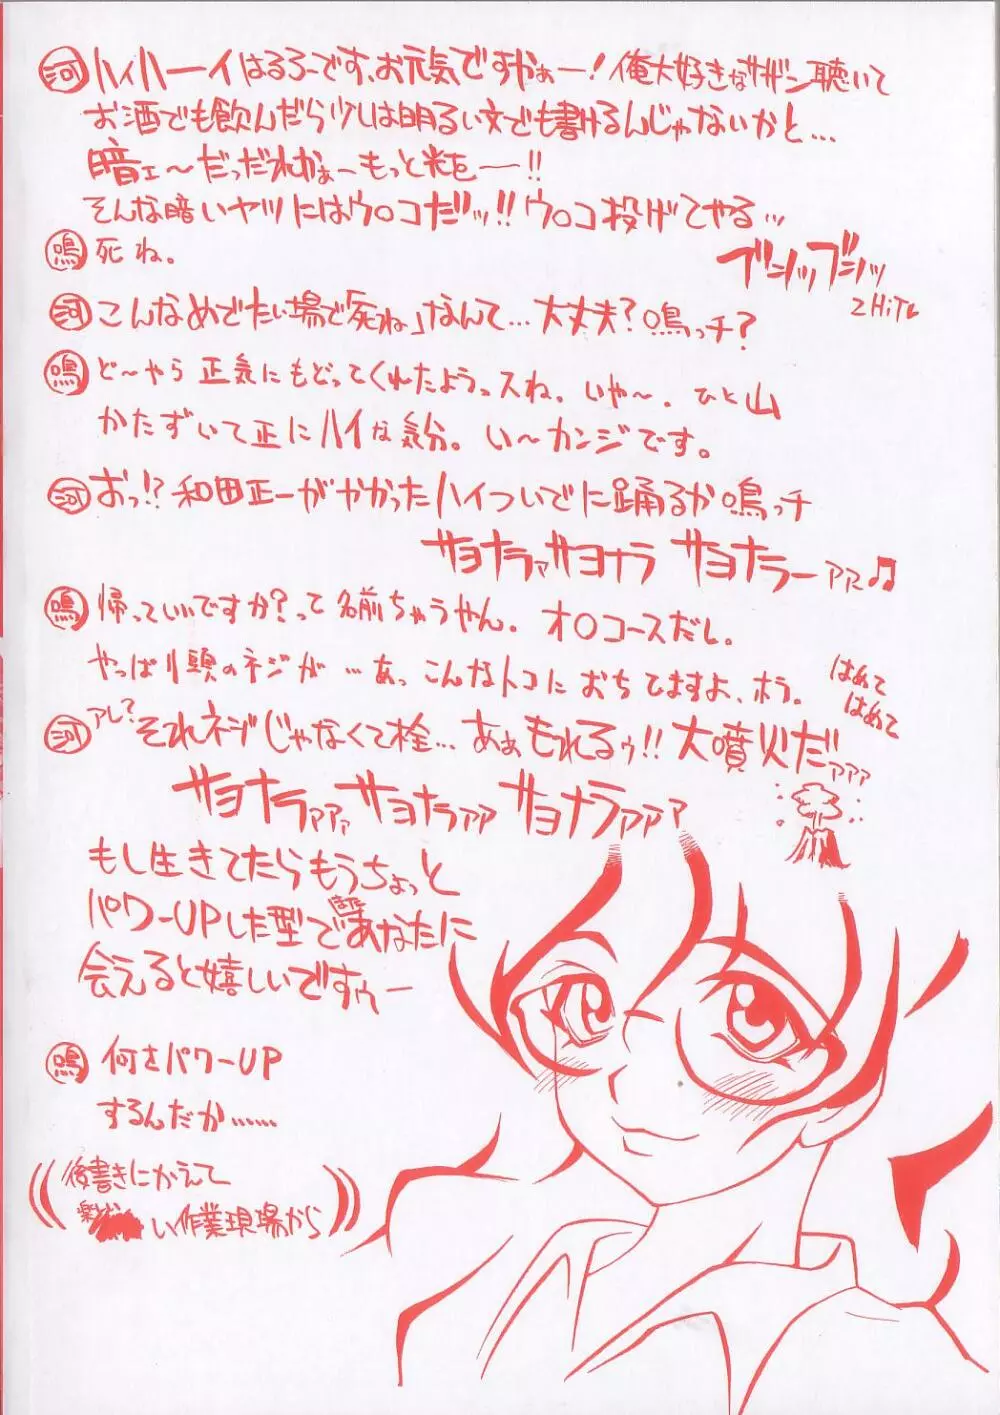 河 ハイハーイはるろーです、お元気ですかぁー!俺大好きなサザン聴いて
お酒でも飲んだら少しは明るい文でも書けるんじゃないかと…
暗ェ〜だっだれかぁーもっと光をー!!
そんな暗いヤツにはウ○コだッ!!ウ○コ投げてやるッ
ブンッブンッ
2HiT
鳴 死ね。
河 こんなめでたい場で「死ね」なんて…大丈夫?鳴っチ?
鳴 ど〜やら正気にもどってくれたようっスね。いや〜。ひと山
かたずいて正にハイな気分。い〜カンジです。
河 おっ!?和田正一がやかったハイついでに踊るか鳴っチ
サヨナラァサヨナラ サヨナラーァァ♫
鳴 帰っていいですか?って名前ちゃうやん。オ○コースだし。
やっぱり頭のネジが…あっこんなトコにおちてますよ、ホラ。
はめて
はめて
河 アレ?それネジじゃなくて栓…あぁもれるゥ!!大噴火だァァァ
サヨナラァァァサヨナラァァァサヨナラァァァ
もし生きてたらもうちょっと
パワーUPした型であなたに
会えると嬉しいですぅー
鳴 何さパワーUP
するんだか……
((後書きにかえて
い作業現場から))